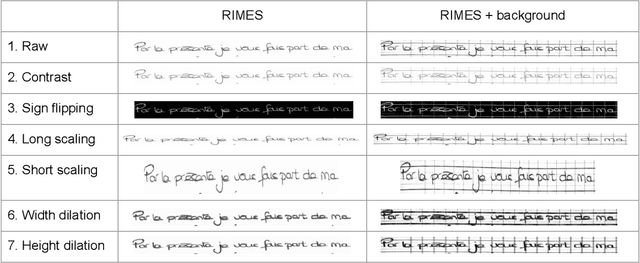 RIMES
RIMES + background
1. Raw
Par la présente je vous fais part de ma
Par la présente je vous fais part de ma
2. Contrast
Par la présente je vous fais part de ma
Par la présente je vous fais part de ma
3. Sign flipping
Par la présente je vous fais part de ma
Par la présente je vous fais part de ma
4. Long scaling
Par la présente je vous fais part de ma
Par la présente je vous fais part de ma
5. Short scaling
Par la présente je vous fais part de ma
Par la présente je vous fais part de ma
6. Width dilation
Par la présente je vous fais part de ma
Par la présente je vous fais part de ma
7. Height dilation
Par la présente je vous fais part de ma
Par la présente je vous fais part de ma